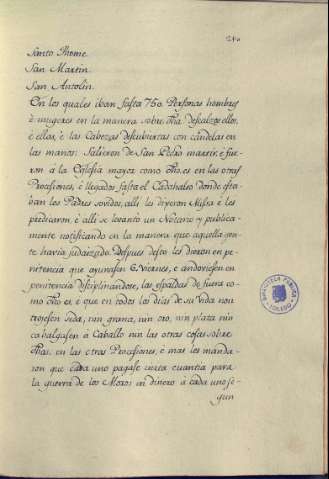 Santo Thome.
San Martin.
San Antolin.
En los quales iban fasta 750. Personas hombres
è mugeres en la manera sobre dha descalzos ellos,
è ellas, è las Cabezas descubiertas con candelas en
las manos: Salieron de San Pedro martir, è fue-
ron á la Iglesia mayor como dho es en las otras
Procesiones, è llegados fasta el Cadahalso donde esta-
ban los Padres se les dixeron Missa è les
predicaron, è alli se levanto un Notario publica-
mente notificando en la manera que aquella gen-
te havia judaizado. Despues desto les dieron en pe-
nitencia que ayunasen 6. Viernes, è anduviesen en
penitencia disciplinandose, las espaldas de fuera co-
mo dho es, è que en todos los dias de su vida non
trojesen seda, nin grana, nin oro, nin plata nin
cabalgasen à Caballo nin las otras cosas sobre
dhas, en las otras Procesiones, è mas les manda-
ron que cada uno pagase cierta cuantia para
la guerra de los Moros en dinero à cada uno se-
gun
BIBLIOTECA PUBLICA
TOLEDO